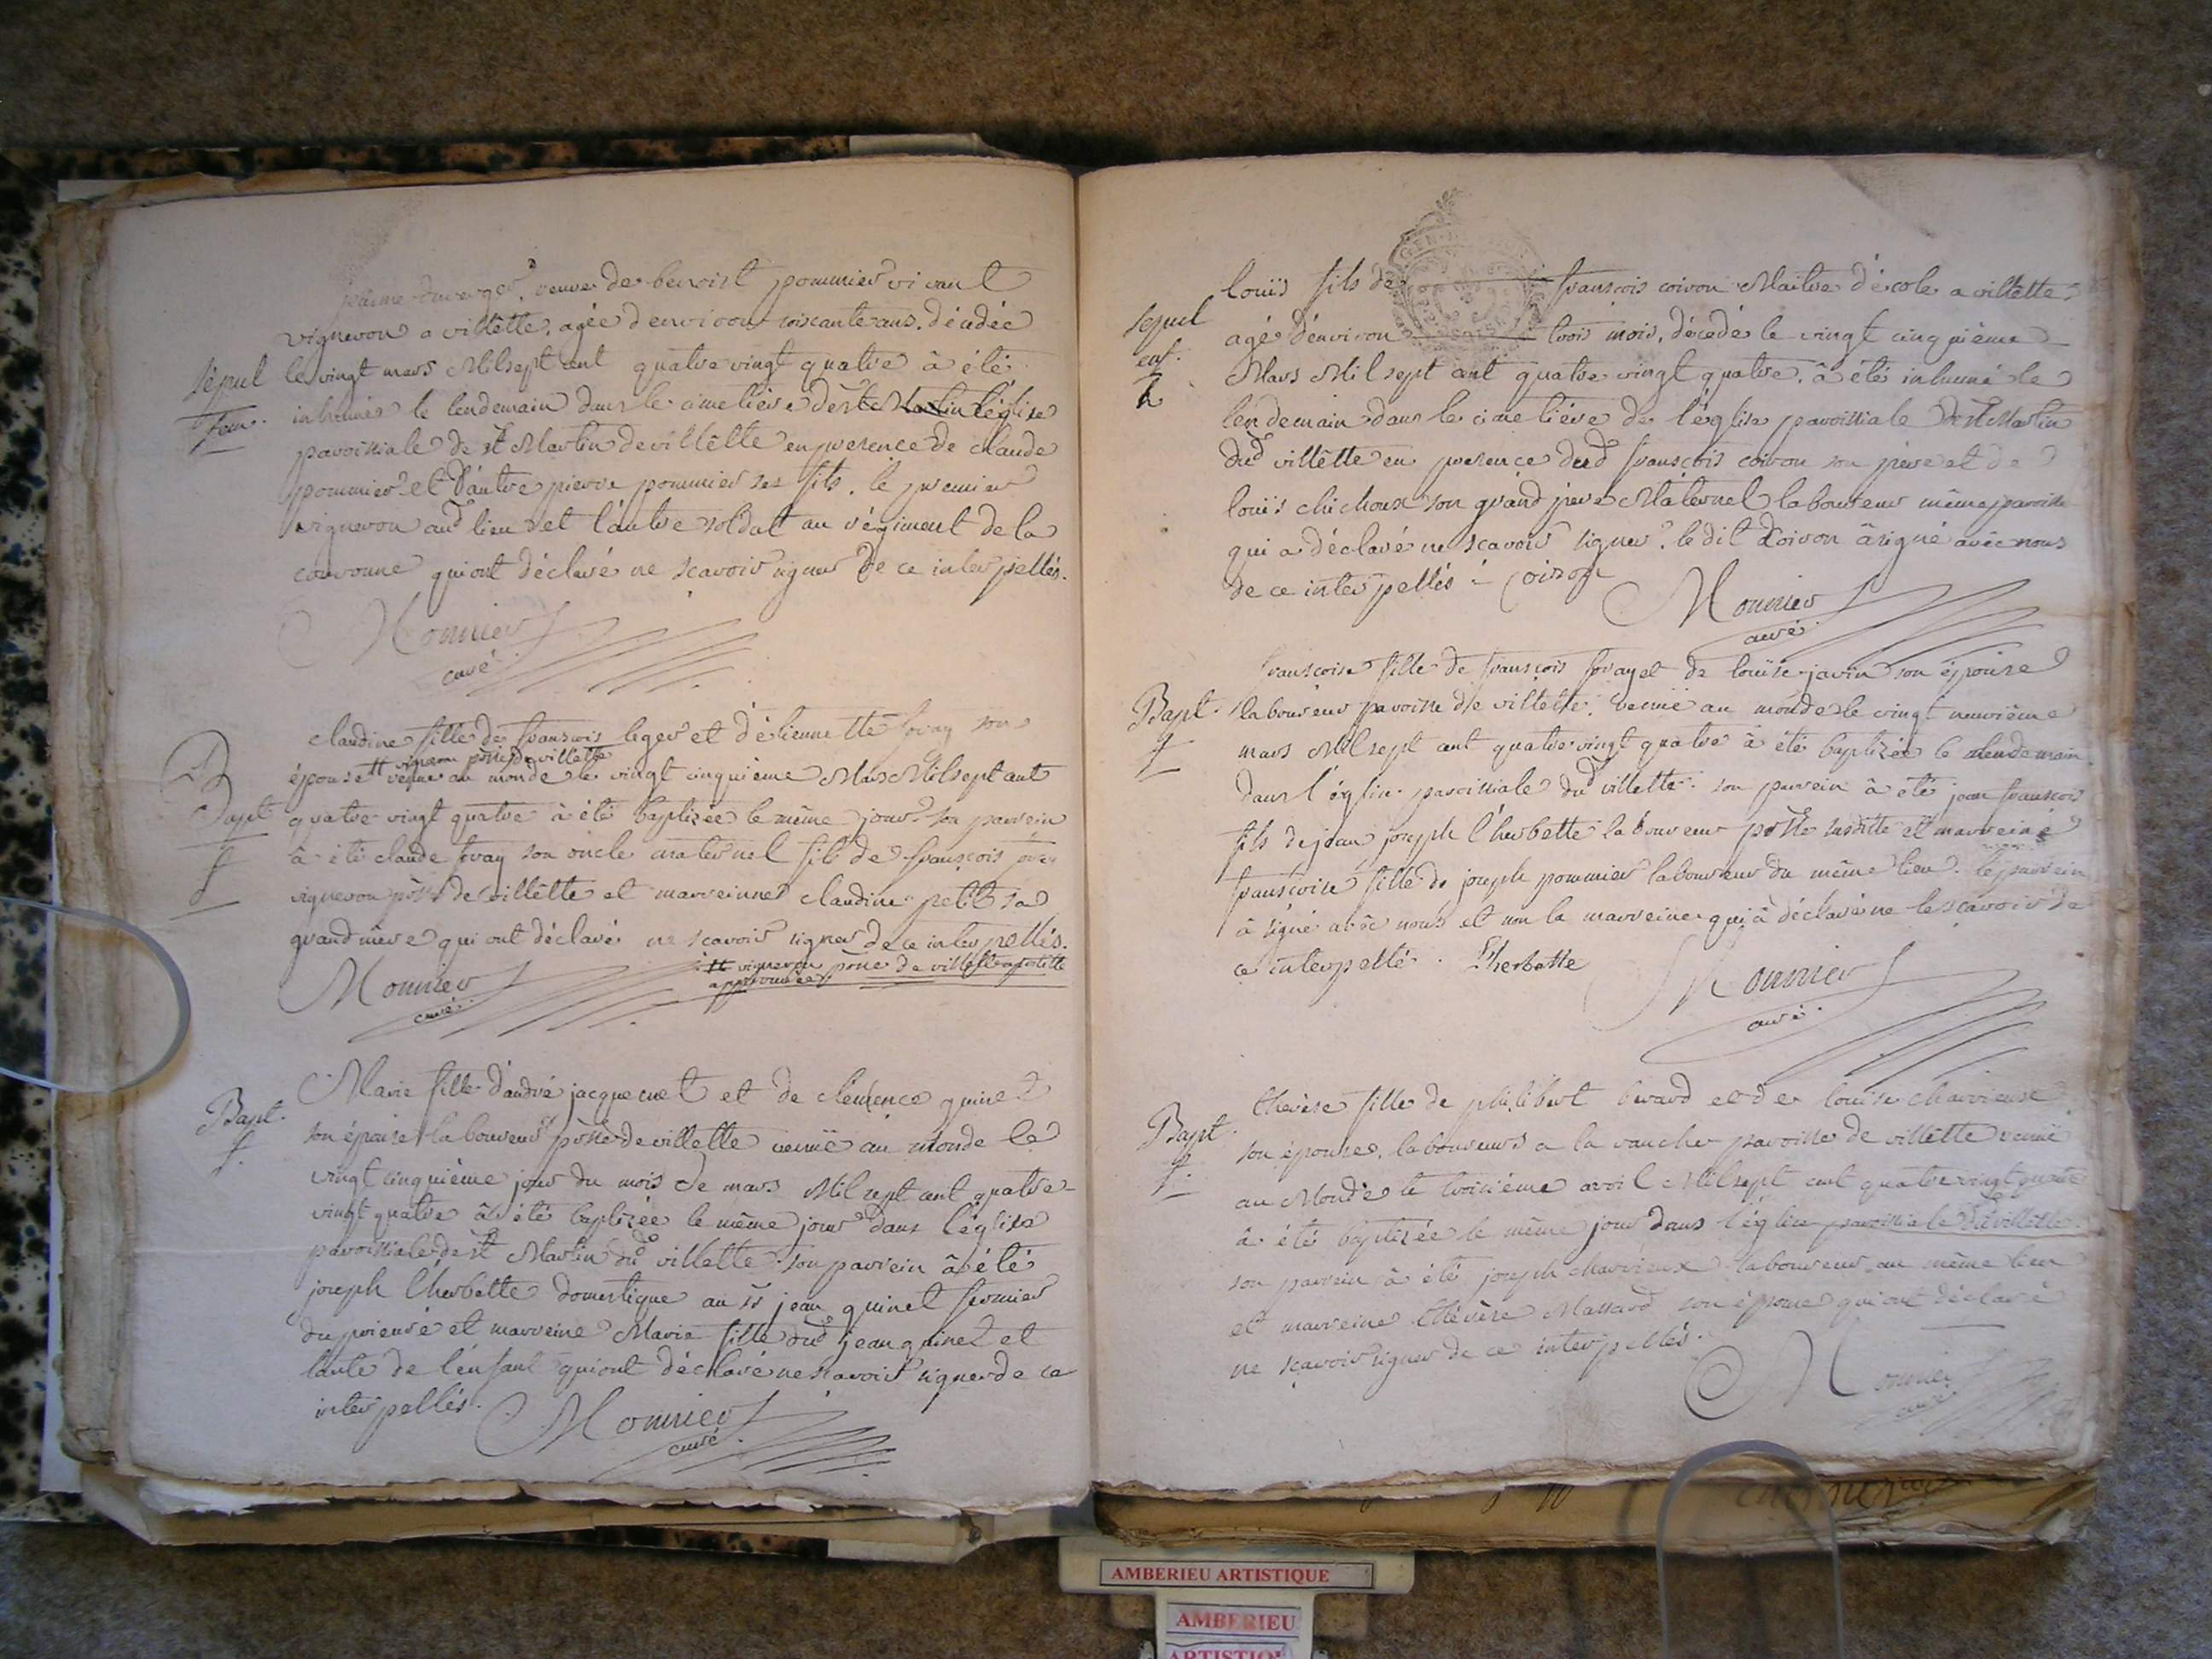 jeanne duverger, veuve de benoist pommier vivant
vigneron a villette, agée d'environ soixante ans, décédée
le vingt mars Mil sept cent quatre vingt quatre â été
Sépul
fem.
inhumée le lendemain dans le cimetiére de st Martin l'église
paroissiale de st Martin de villette en presence de claude
pommier et d'autre pierre pommier ses fils, le premier
vigneron aud lieu et l'autre soldat au régiment de la
couronne qui ont déclaré ne scavoir signer de ce interpellés.
Monnier
curé
claudine fille de francois leger et d'étiennette foray son
vigneron pssse de villette
épouse # venue au monde le vingt cinquième Mars Mil sept cent
Bapt
f
quatre vingt quatre à été baptizée le même jour. son parrein
â été claude foray son oncle maternel fils de françois foray
vigneron pssse de villette et marreinne claudine petit sa
grand mère qui ont déclaré ne scavoir signer de ce interpellés.
# vigneron psse de villette apostille
approuvée
Monnier
curé
Bapt.
f.
Marie fille d'andré jacquemet et de clémence quinet
son épouse laboureur psse de villette venüe au monde le
vingt cinquième jour du mois de mars Mil sept cent quatre
vingt quatre â été baptizée le même jour dans l'église
paroissiale de st Martin dud villette. son parrein â été
joseph l'herbette domestique au sr jean quinet fermier
du prieuré et marreine Marie fille dud jean quinet et
tante de l'enfant qui ont déclaré ne scavoir signer de ce
interpellés.
Monnier
curé
louis fils de françois coiron Maitre d'école a villette
Sepul
enf.
agé d'environ trois mois, décedé le vingt cinquième
Mars Mil sept cent quatre vingt quatre, â été inhumé le
lendemain dans le cimetiére de l'église paroissiale de st Martin
dud villette en presence dud françois coiron son père et de
louis chichoux son grand père Maternel laboureur même paroisse
qui a déclaré ne scavoir signer, le dit Coiron â signé avec nous
de ce interpellés Coiron
Monnier
curé
françoise fille de françois foray et de louise javin son épouse
Bapt.
f
laboureur paroisse de villette, venüe au monde le vingt neuvième
mars Mil sept cent quatre vingt quatre à été baptizée le lendemain
dans l'église paroissiale dud villette. son parrein â été jean françois
fils de jean joseph l'herbette laboureur psse susditte et marreine
françoise fille de joseph pommier laboureur du même lieu. le parrein
â signé avec nous et non la marreine qui â déclaré ne le scavoir de
ce interpellé. L'herbette
Monnier
curé
Bapt.
f.
therèse fille de philibert berard et de louise charvieux
son épouse, laboureurs a la ranche paroisse de villette venüe
au Monde le troisième avril Mil sept cent quatre vingt quatre
â été baptizée le même jour dans l'église paroissiale de villette.
son parrein â été joseph charvieux laboureur au même lieu
et marreine thérèse Massard son épouse qui ont déclaré
ne scavoir signer de ce interpellés.
Monnier
curé
AMBERIEU ARTISTIQUE
AMBERIEU
ARTISTIQUE